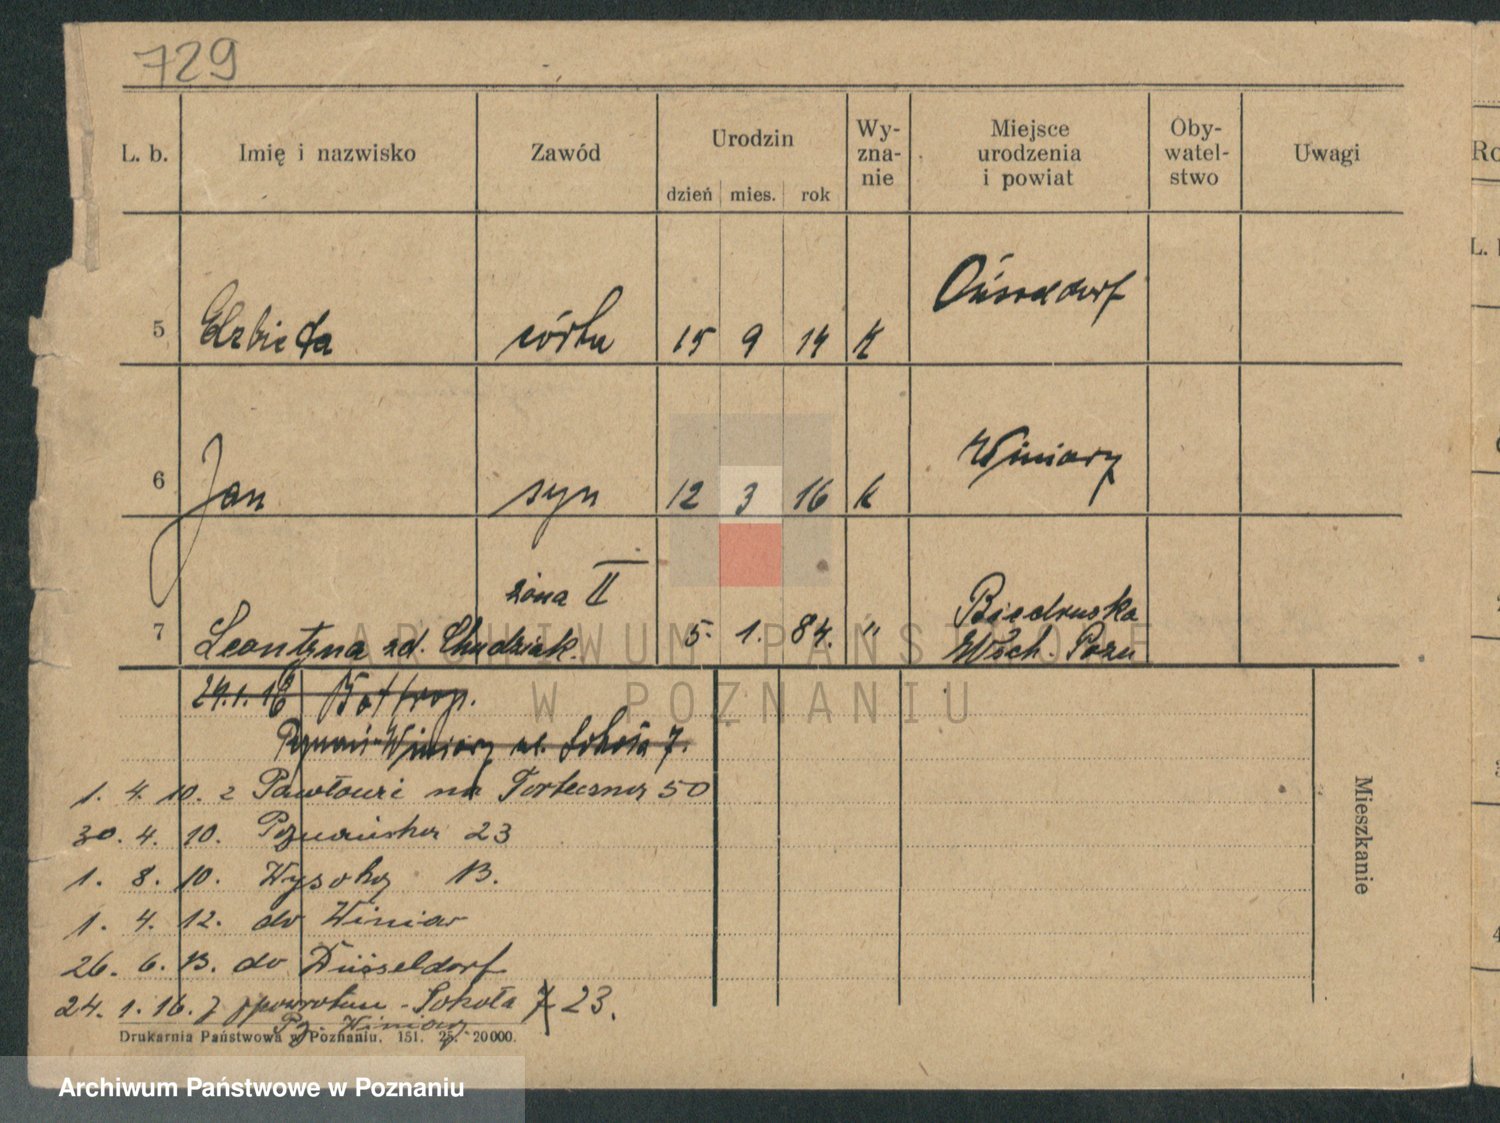 729
L. b. Imię i nazwisko Zawód Urodzin dzień mies. rok Wy-zna-nie Miejsce urodzenia i powiat Oby-watel-stwo Uwagi
5 Elzbieta córka 15 9 14 k Düsseldorf
6 Jan syn 12 3 16 k Winiary
żona II
7 Leontyna zd. Chudziak. 5. 1. 84. " Biedrusko
Wsch. Pozn
24.1.18
Poznań-Winiary ul. Sokoła 7.
1. 4. 10. z na Forteczną 50
30. 4. 10. Poznańska 23
1. 8. 10. Wysoka 13.
1. 4. 12. do Winiar
26. 6. 13. do Düsseldorf
24. 1. 16. z powrotem - Sokoła 7 23.
Pz. Winiary
Mieszkanie
Drukarnia Państwowa w Poznaniu. 151. 25. 20000.
ARCHIWUM PAŃSTWOWE
W POZNANIU
Archiwum Państwowe w Poznaniu
Ro
L.